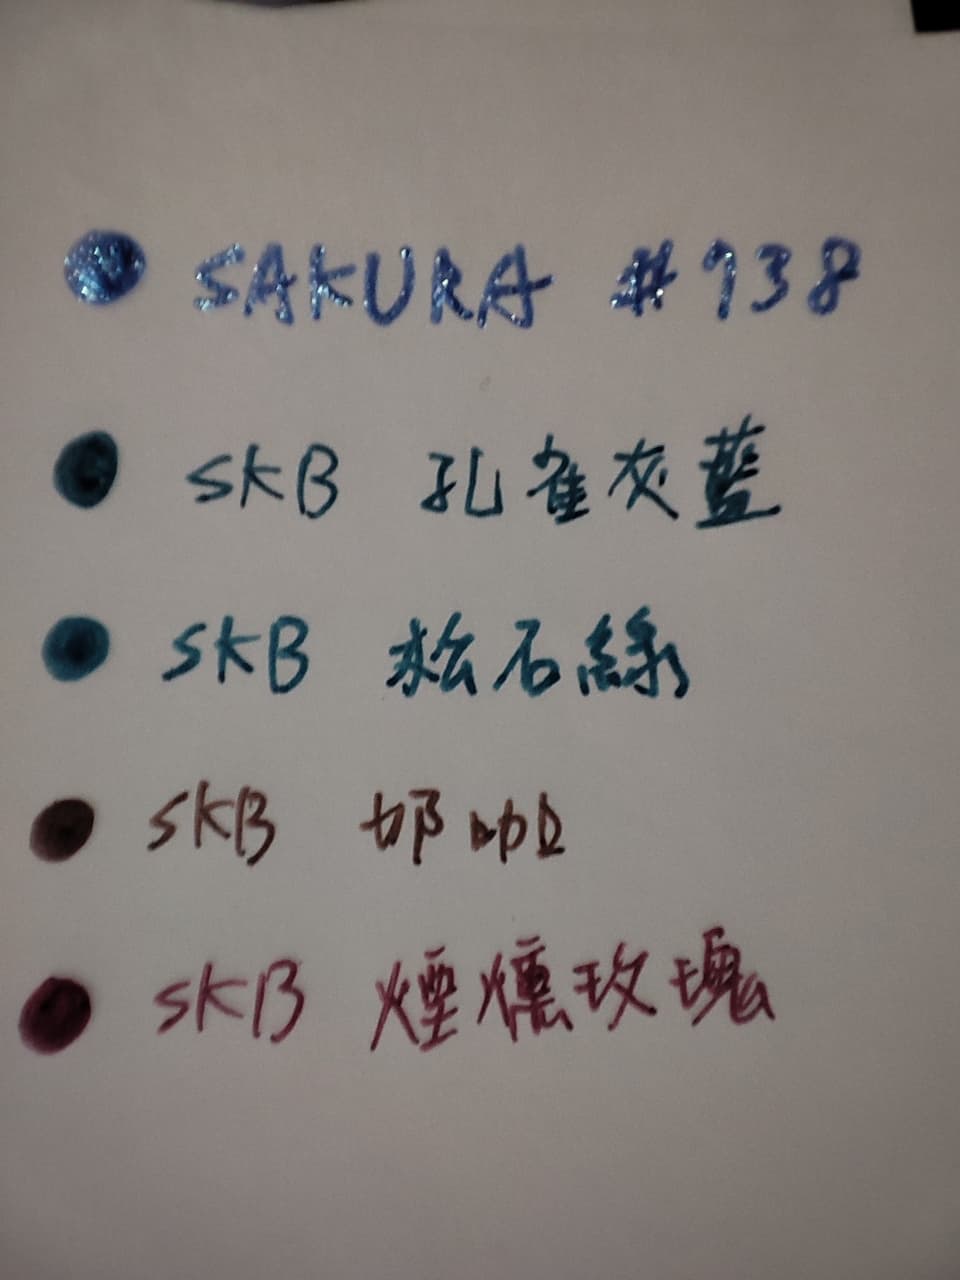 SAKURA #938
SKB 孔雀灰藍
SKB 松石綠
SKB 奶咖
SKB 煙燻玫瑰